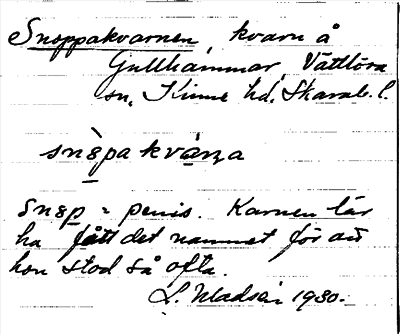 Snoppakvarnen, kvarn å
Gullhammar, Vättlösa
sn, Kinne hd. Skarab. l.
snɞ̀pa kvàɳa
Snɞp = penis. Karnen lär
ha fått det namnet för att
hon stod så ofta.
L. Madsén 1930.